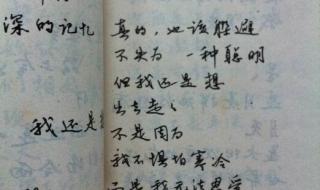 深的记忆
我还是
真的,也该躲避
不失为 一种聪明
但我还是想
出去走走
不是因为
我不惧怕寒冷
而是我无法思学